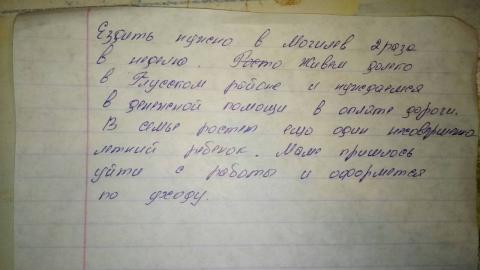 Ездить нужно в Могилев 2 раза
в неделю. Живем далеко
в Глусском районе и нуждаемся
в денежной помощи в оплате дороги.
В семье растет ещо один несовершенно
летний ребенок. Маме пришлось
уйти с работы и оформется
по уходу.